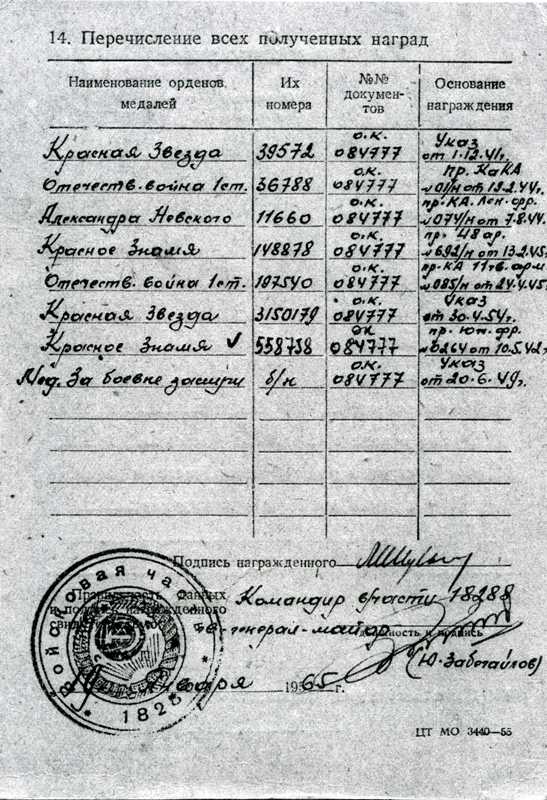 14. Перечисление всех полученных наград
Наименование орденов, медалей
Их номера
№№ докумен-тов
Основание награждения
Красная Звезда 39572 о.к. 084777 Указ от 1.12.41г.
Отечеств. война 1 ст. 36788 о.к. 084777 пр. КаКА № 01/н от 13.2.44г.
Александра Невского 11660 о.к. 084777 пр. КА. Лен. фр. № 074/н от 7.8.44г.
Красное Знамя 148878 о.к. 084777 пр. 48 ар. № 692/н от 13.2.45г.
Отечеств. война 1 ст. 197540 о.к. 084777 пр. КА 11 гв. арм № 085/н от 24.4.45г.
Красная Звезда 3150179 о.к. 084777 Указ от 30.4.54г.
Красное Знамя ✓ 558738 ок 084777 пр. Юж. фр. № 0264 от 10.5.42г.
Мед. За боевые заслуги б/н о.к. 084777 Указ от 20.6.49г.
Подпись награжденного
Правильность данных
и подпись награжденного
Командир в/части 18288
генерал-майор
должность и подпись
(Ю. Заботайлов)
января 1965 г.
Войсковая час
1828
ЦТ МО 3440—55